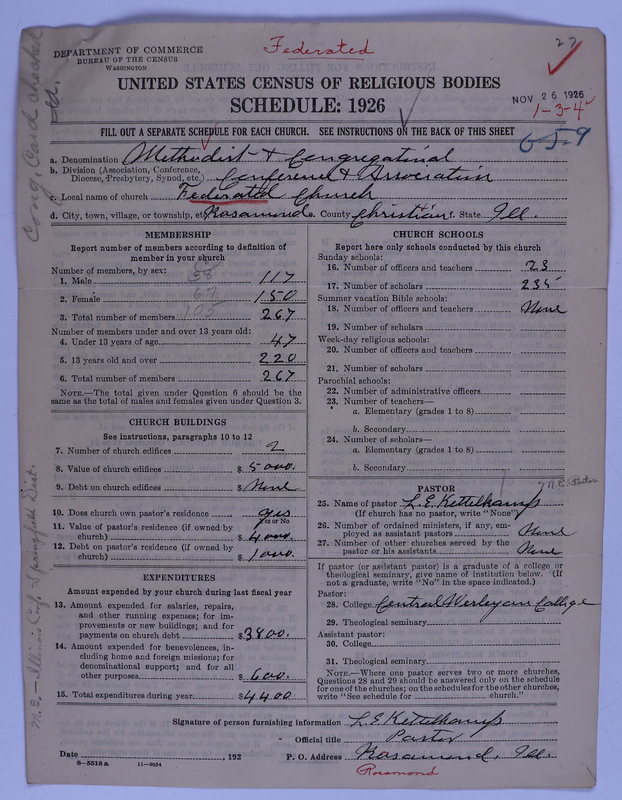 Federated
22
DEPARTMENT OF COMMERCE
BUREAU OF THE CENSUS
WASHINGTON
UNITED STATES CENSUS OF RELIGIOUS BODIES
SCHEDULE: 1926
NOV 26 1926
1-3-4
659
FILL OUT A SEPARATE SCHEDULE FOR EACH CHURCH. SEE INSTRUCTIONS ON THE BACK OF THIS SHEET
a. Denomination Methodist & Congregational
b. Division (Association, Conference, Diocese, Presbytery, Synod, etc.) Conference & Association
c. Local name of church Federated Church
d. City, town, village, or township, etc. Rosamond e. County Christian f. State Ill.
MEMBERSHIP
Report number of members according to definition of member in your church
Number of members, by sex:
1. Male 58 117
2. Female 67 150
3. Total number of members 105 267
Number of members under and over 13 years old:
4. Under 13 years of age 47
5. 13 years old and over 220
6. Total number of members 267
NOTE.—The total given under Question 6 should be the same as the total of males and females given under Question 3.
CHURCH BUILDINGS
See instructions, paragraphs 10 to 12
7. Number of church edifices 2
8. Value of church edifices $ 5000.
9. Debt on church edifices $ None
10. Does church own pastor's residence? yes
Yes or No
11. Value of pastor's residence (if owned by church) $ 4000.
12. Debt on pastor's residence (if owned by church) $ 1000.
EXPENDITURES
Amount expended by church during last fiscal year
13. Amount expended for salaries, repairs, and other running expenses; for improvements or new buildings; and for payments on church debt $ 3800.
14. Amount expended for benevolences, including home and foreign missions; for denominational support; and for all other purposes $ 600.
15. Total expenditures during year $ 4400
CHURCH SCHOOLS
Report here only schools conducted by this church
Sunday schools:
16. Number of officers and teachers 23
17. Number of scholars 235
Summer vacation Bible schools:
18. Number of officers and teachers None
19. Number of scholars
Week-day religious schools:
20. Number of officers and teachers
21. Number of scholars
Parochial schools:
22. Number of administrative officers
23. Number of teachers—
a. Elementary (grades 1 to 8)
b. Secondary
24. Number of scholars—
a. Elementary (grades 1 to 8)
b. Secondary
PASTOR
M.E. Pastor
25. Name of pastor L. E. Kettelkamp
(If church has no pastor, write "None")
26. Number of ordained ministers, if any, employed as assistant pastors None
27. Number of other churches served by the pastor or his assistants None
If pastor (or assistant pastor) is a graduate of a college or theological seminary, give name of institution below. (If not a graduate, write "No" in the space indicated.)
Pastor:
28. College Central Wesleyan College
29. Theological seminary
Assistant pastor:
30. College
31. Theological seminary
NOTE.—Where one pastor serves two or more churches, Questions 28 and 29 should be answered only on the schedule for one of the churches; on the schedules for the other churches, write "See schedule for church."
Signature of person furnishing information L. E. Kettelkamp
Official title Pastor
Date , 192 P. O. Address Rosamond, Ill.
8—5518 a 11—9054
Rosamond
Cong. Card checked
M.E.—Illinois Conf. Springfield Dist.